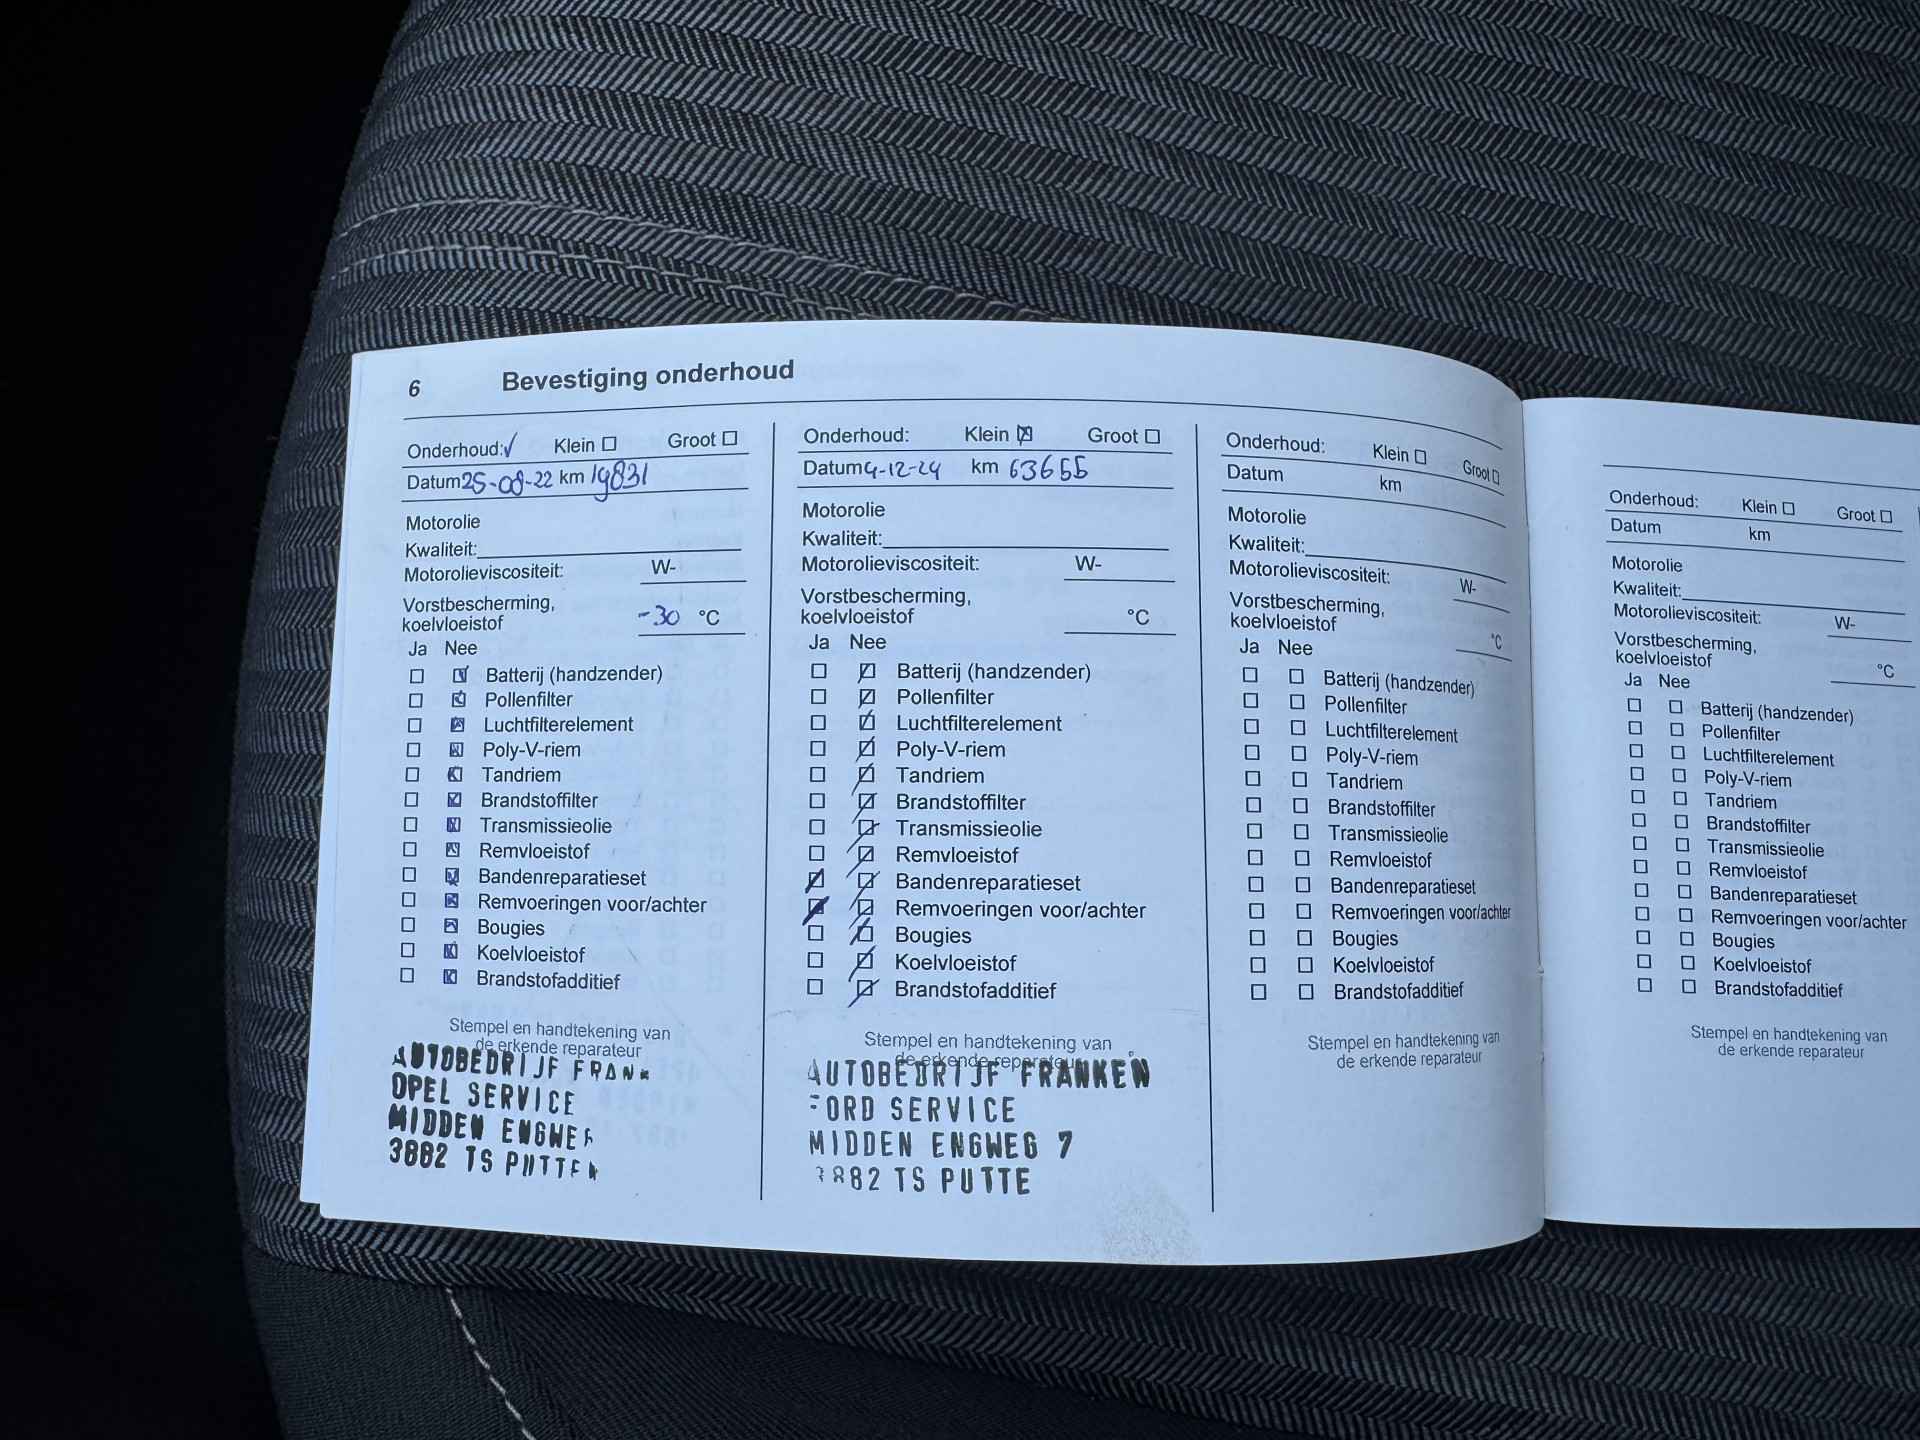 6 Bevestiging onderhoud
Onderhoud: Klein Groot
Datum 25-08-22 km 19831
Motorolie
Kwaliteit:
Motorolieviscositeit: W-
Vorstbescherming,
koelvloeistof -30 °C
Ja Nee
Batterij (handzender)
Pollenfilter
Luchtfilterelement
Poly-V-riem
Tandriem
Brandstoffilter
Transmissieolie
Remvloeistof
Bandenreparatieset
Remvoeringen voor/achter
Bougies
Koelvloeistof
Brandstofadditief
Stempel en handtekening van
de erkende reparateur
AUTOBEDRIJF FRANK
OPEL SERVICE
MIDDEN ENGWEG
3882 TS PUTTEN
Onderhoud: Klein Groot
Datum 4-12-24 km 63655
Motorolie
Kwaliteit:
Motorolieviscositeit: W-
Vorstbescherming,
koelvloeistof °C
Ja Nee
Batterij (handzender)
Pollenfilter
Luchtfilterelement
Poly-V-riem
Tandriem
Brandstoffilter
Transmissieolie
Remvloeistof
Bandenreparatieset
Remvoeringen voor/achter
Bougies
Koelvloeistof
Brandstofadditief
Stempel en handtekening van
de erkende reparateur
AUTOBEDRIJF FRANKEN
FORD SERVICE
MIDDEN ENGWEG 7
3882 TS PUTTE
Onderhoud: Klein Groot
Datum km
Motorolie
Kwaliteit:
Motorolieviscositeit: W-
Vorstbescherming,
koelvloeistof °C
Ja Nee
Batterij (handzender)
Pollenfilter
Luchtfilterelement
Poly-V-riem
Tandriem
Brandstoffilter
Transmissieolie
Remvloeistof
Bandenreparatieset
Remvoeringen voor/achter
Bougies
Koelvloeistof
Brandstofadditief
Stempel en handtekening van
de erkende reparateur
Onderhoud: Klein Groot
Datum km
Motorolie
Kwaliteit:
Motorolieviscositeit: W-
Vorstbescherming,
koelvloeistof °C
Ja Nee
Batterij (handzender)
Pollenfilter
Luchtfilterelement
Poly-V-riem
Tandriem
Brandstoffilter
Transmissieolie
Remvloeistof
Bandenreparatieset
Remvoeringen voor/achter
Bougies
Koelvloeistof
Brandstofadditief
Stempel en handtekening van
de erkende reparateur